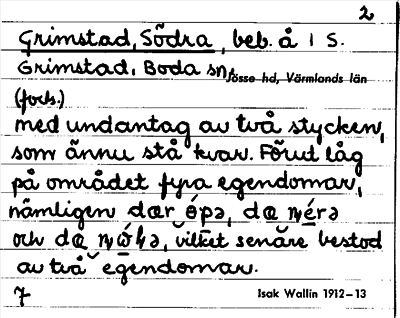 2
Grimstad, Södra, beb. å 1 S.
Grimstad, Boda sn, Jösse hd, Värmlands län
(forts.)
med undantag av två stycken,
som ännu stå kvar. Förut låg
på området fyra egendomar,
nämligen dær
och dæ vilket senare bestod
av två egendomar.
7 Isak Wallin 1912-13